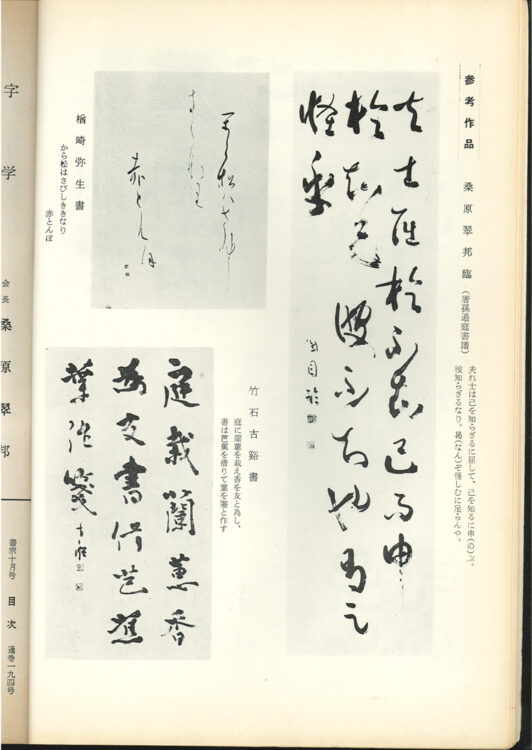 参考作品
桑原翠邦臨(唐孫過庭書譜)
夫れ士は己を知らざるに屈して、己を知るに申(の)ぶ。
彼知らざるなり。曷(なん)ぞ怪しむに足らんや。
夫士屈於不知己而申
於知己彼不知也曷足
怪乎
竹石古谿書
庭に蘭蕙を栽え香を友と為し、
書は芭蕉を借りて葉を箋と作す
庭栽蘭蕙香
為友書借芭蕉
葉作箋
楢崎弥生書
から松はさびしききなり
赤とんぼ
赤とんぼ
字学
会長 桑原翠邦
書宗十月号 目次 通巻一九四号